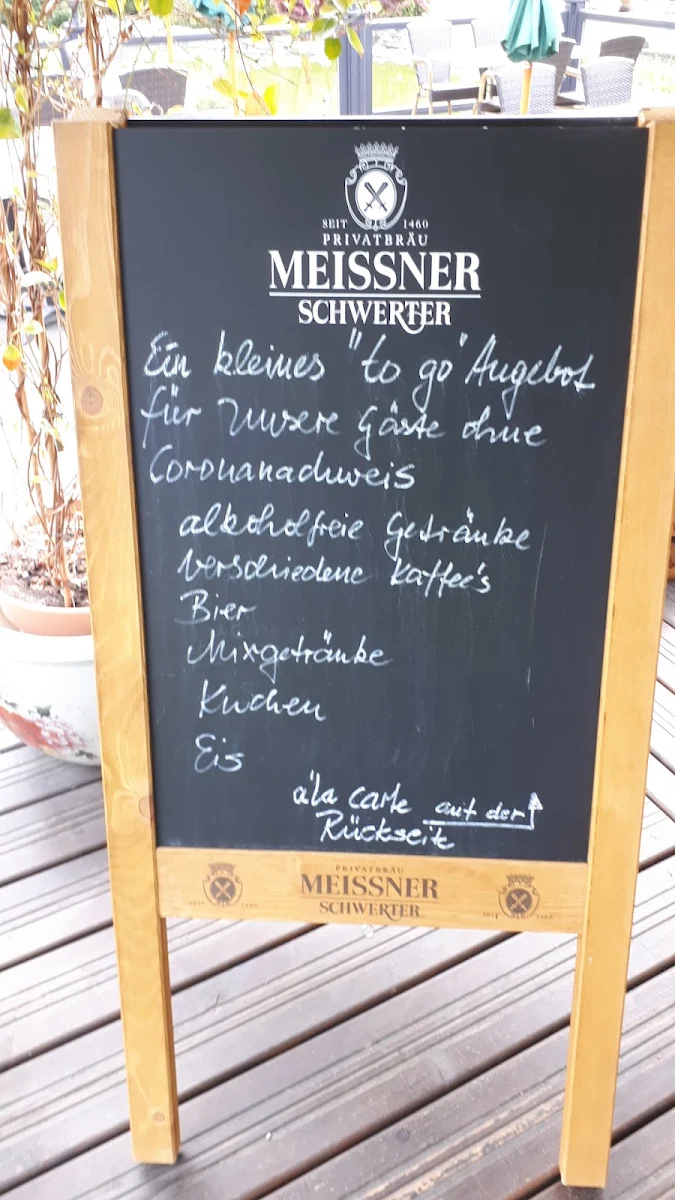 SEIT 1460
PRIVATBRÄU
MEISSNER
SCHWERTER
Ein kleines "to go" Angebot
für unsere Gäste ohne
Coronanachweis
alkoholfreie Getränke
verschiedene Kaffee's
Bier
Mixgetränke
Kuchen
Eis
a'la carte auf der
Rückseite
PRIVATBRÄU
MEISSNER
SCHWERTER
SEIT 1460
SEIT 1460